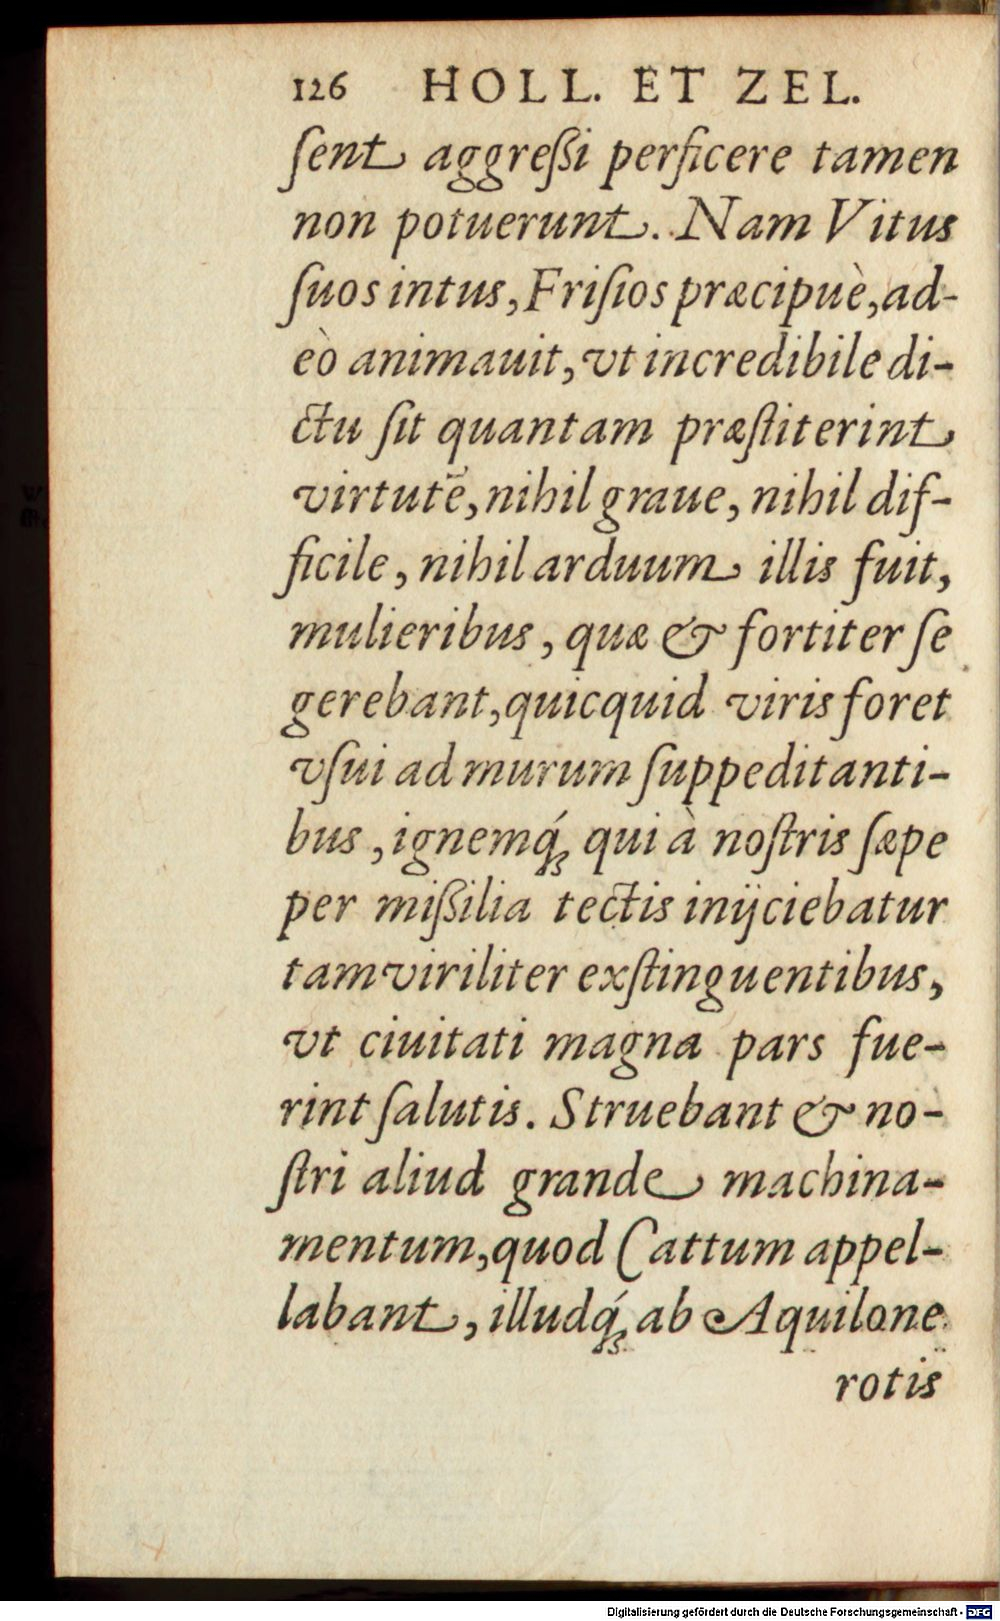 126 HOLL. ET ZEL.
ſent aggreßi perficere tamen
non potuerunt. Nam Vitus
ſuos intus, Friſios præcipuè, ad-
eò animauit, vt incredibile di-
ctu ſit quantam præſtiterint
virtutē, nihil graue, nihil dif-
ficile, nihil arduum illis fuit,
mulieribus, quæ & fortiter ſe
gerebant, quicquid viris foret
vſui ad murum ſuppeditanti-
bus, ignemq́ꝫ qui à noſtris ſæpe
per mißilia tectis inijciebatur
tam viriliter exſtinguentibus,
vt ciuitati magna pars fue-
rint ſalutis. Struebant & no-
ſtri aliud grande machina-
mentum, quod Cattum appel-
labant, illudq́ꝫ ab Aquilone
rotis
Digitalisierung gefördert durch die Deutsche Forschungsgemeinschaft - DFG